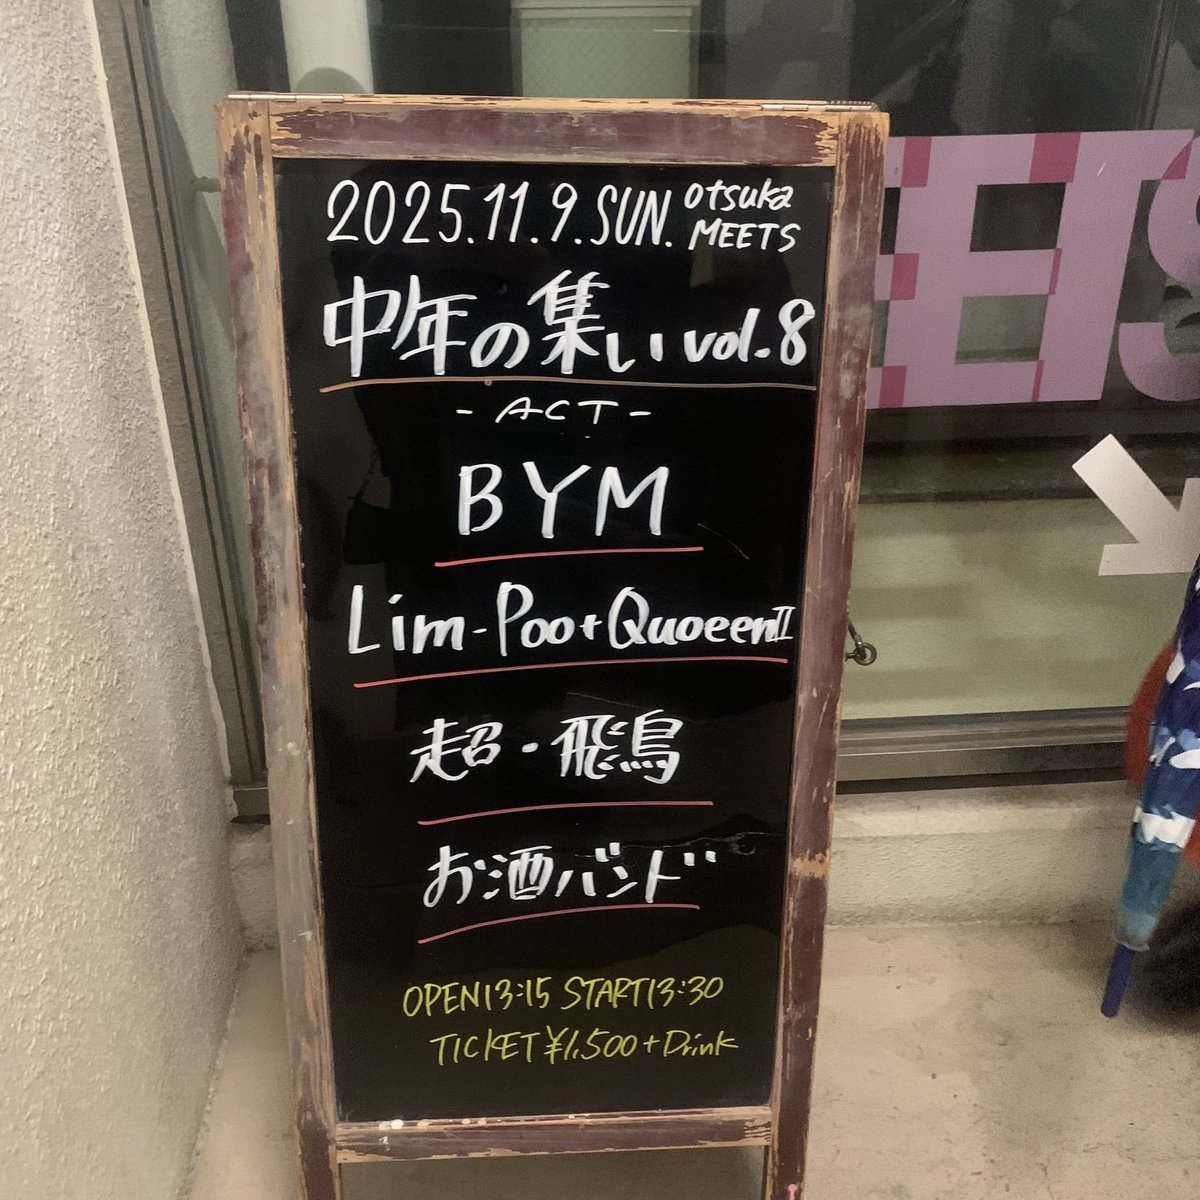 2025.11.9.SUN. otsuka MEETS
中年の集い vol.8
- ACT -
BYM
Lim-Poo+QuoeenII
超・飛鳥
お酒バンド
OPEN13:15 START13:30
TICKET ¥1,500+Drink